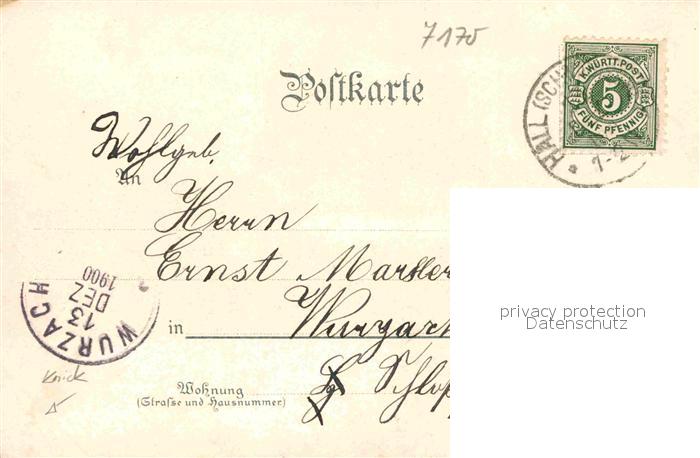 7175
Postkarte
K. WÜRTT. POST
5
FÜNF PFENNIG
HALL (SCH
Wohlgeb.
An
Herrn
Ernst
WURZACH
13
DEZ
1900
in Wurzach
Wohnung
(Strasse und Hausnummer)
Schloß
privacy protection
Datenschutz